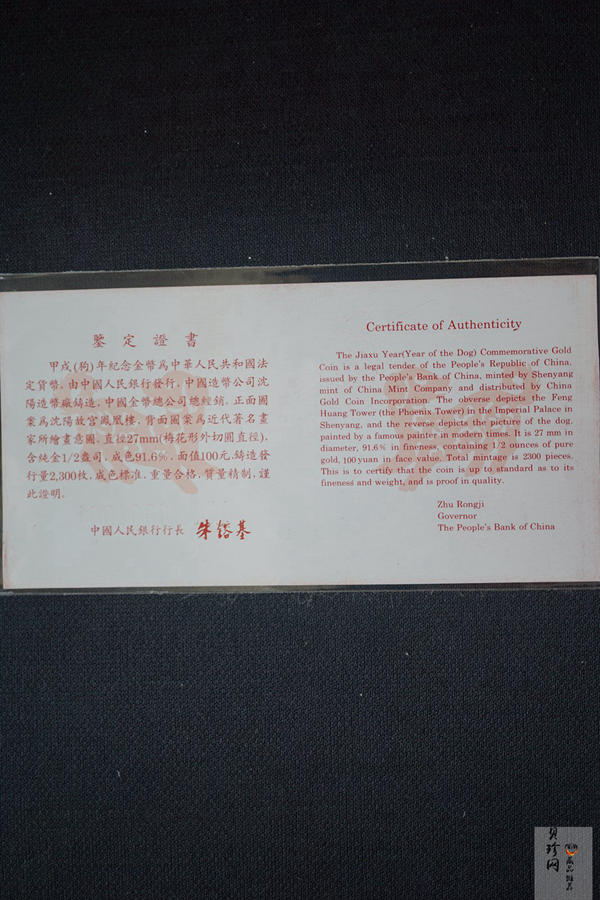 鑒定證書
甲戌(狗)年紀念金幣爲中華人民共和國法
定貨幣,由中國人民銀行發行,中國造幣公司沈
陽造幣廠鑄造,中國金幣總公司總經銷,正面圖
案爲沈陽故宮鳳凰樓,背面圖案爲近代著名畫
家所繪畫意圖,直徑27mm(梅花形外切圓直徑),
含純金1/2盎司,成色91.6%,面值100元,鑄造發
行量2,300枚,成色標准,重量合格,質量精制,謹
此證明。
中國人民銀行行長 朱鎔基
Certificate of Authenticity
The Jiaxu Year(Year of the Dog) Commemorative Gold
Coin is a legal tender of the People's Republic of China,
issued by the People's Bank of China, minted by Shenyang
mint of China Mint Company and distributed by China
Gold Coin Incorporation. The obverse depicts the Feng
Huang Tower (the Phoenix Tower) in the Imperial Palace in
Shenyang, and the reverse depicts the picture of the dog,
painted by a famous painter in modern times. It is 27 mm in
diameter, 91.6% in fineness, containing 1/2 ounces of pure
gold, 100 yuan in face value. Total mintage is 2300 pieces.
This is to certify that the coin is up to standard as to its
fineness and weight, and is proof in quality.
Zhu Rongji
Governor
The People's Bank of China
珍网